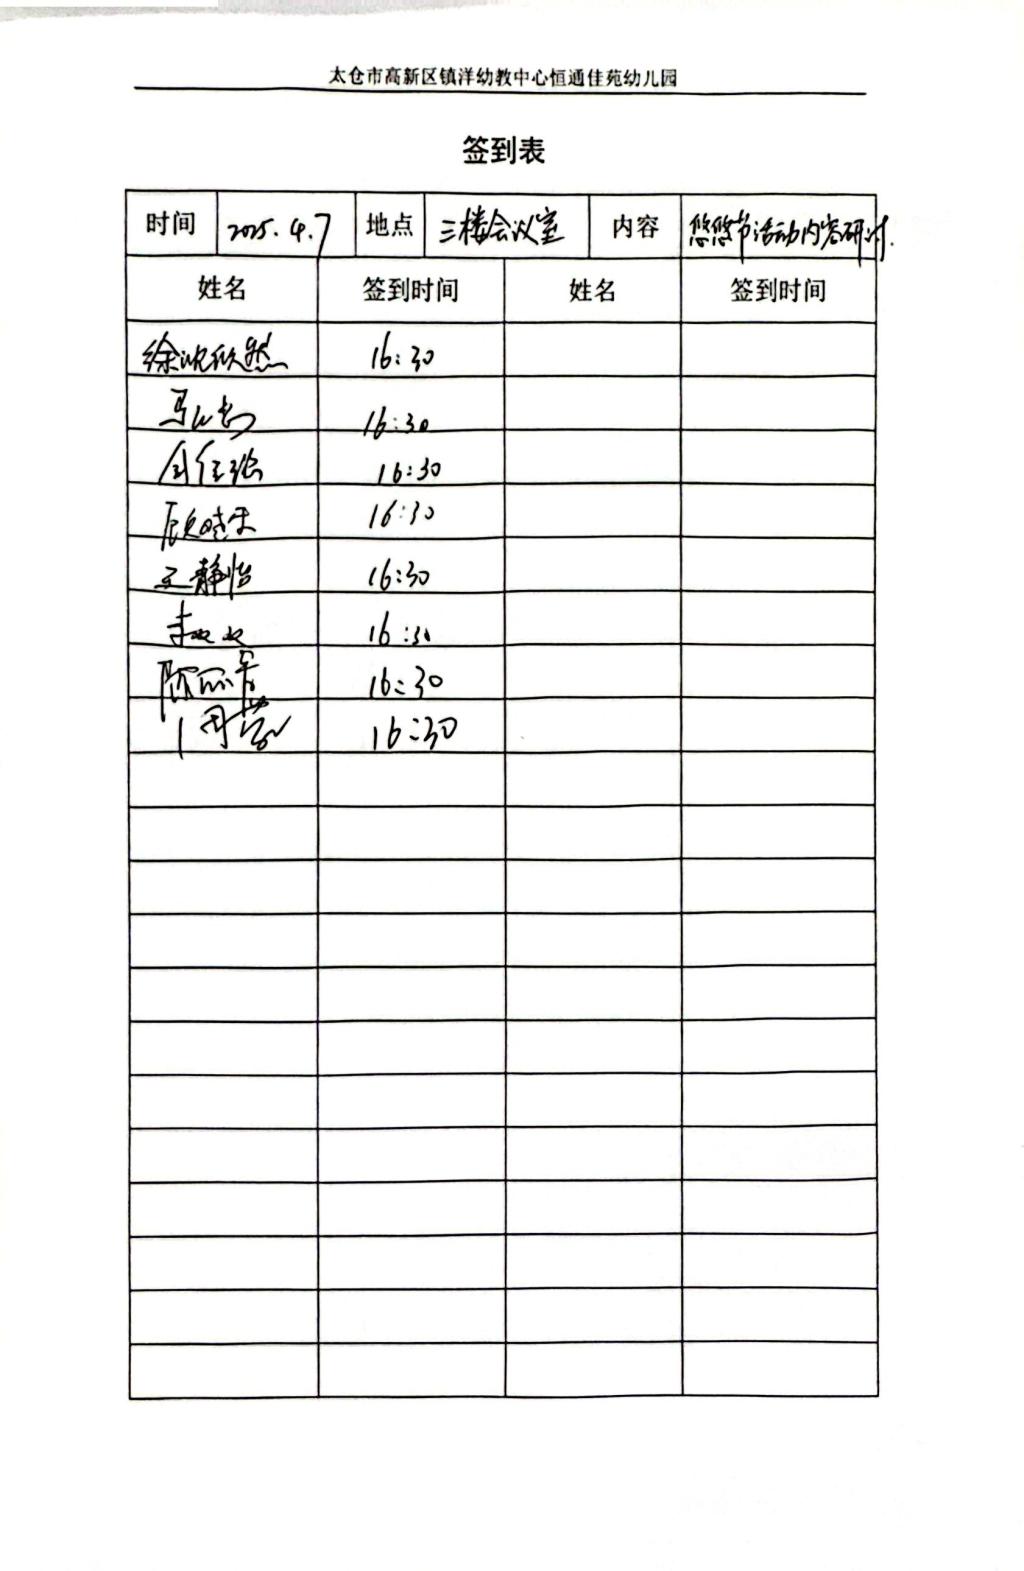 太仓市高新区镇洋幼教中心恒通佳苑幼儿园
签到表
时间 2025.4.7 地点 三楼会议室 内容 悠悠节活动内容研讨.
姓名 签到时间 姓名 签到时间
徐沈欣然 16:30
16:30
16:30
顾晓 16:30
王静怡 16:30
16:30
陈丽 16:30
周 16:30